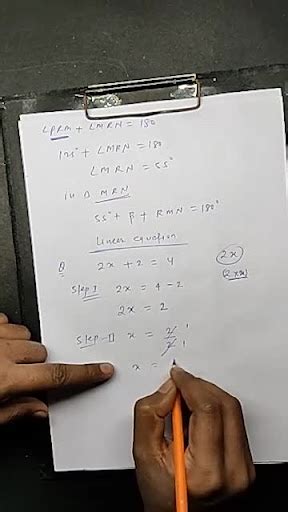 ∠PRM + ∠MRN = 180
125° + ∠MRN = 180
∠MRN = 55°
in Δ MRN
55° + β + RMN = 180°
Linear equation
Q 2x + 2 = 4
Step I 2x = 4 - 2
2x = 2
Step-II x = 2/2 1 1
x = 1
2x
(2×x)